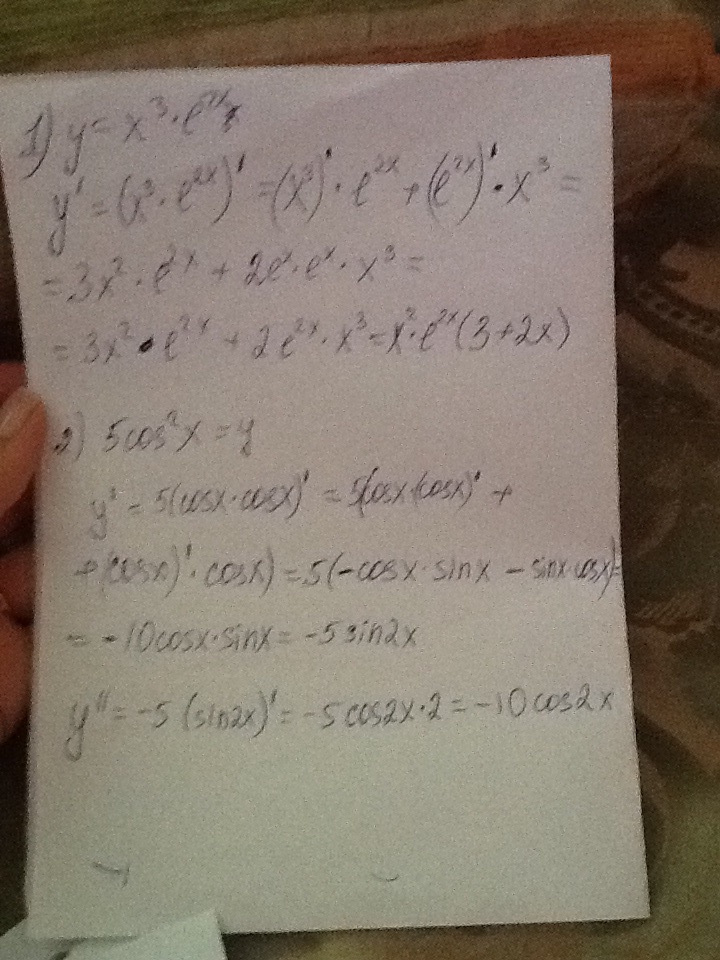 1) y = x³·e²ˣ
y' = (x³·e²ˣ)' = (x³)'·e²ˣ + (e²ˣ)'·x³ =
= 3x²·e²ˣ + 2eˣ·eˣ·x³ =
= 3x²·e²ˣ + 2e²ˣ·x³ = x²·e²ˣ(3+2x)
2) 5cos²x = y
y' = 5(cosx·cosx)' = 5(cosx·(cosx)' +
+(cosx)'·cosx) = 5(-cosx·sinx - sinx·cosx) =
= -10cosx·sinx = -5sin2x
y'' = -5(sin2x)' = -5cos2x·2 = -10cos2x